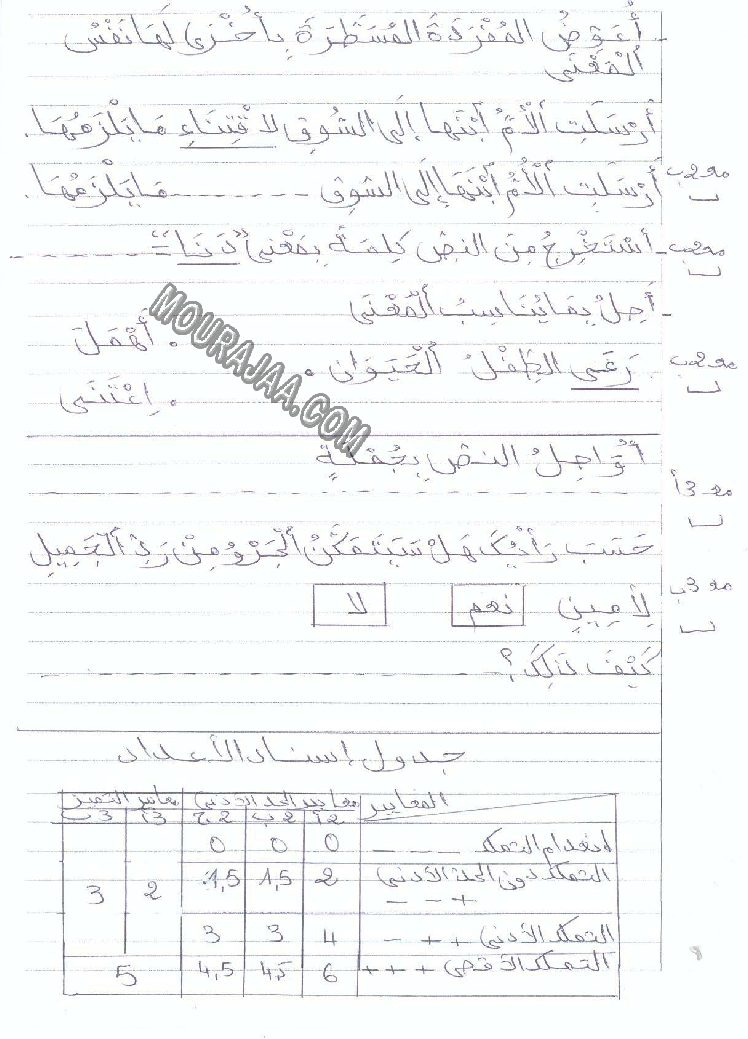 - أُعَوِّضُ المُفْرَدَةَ المُسَطَّرَةَ بِأُخْرَى لَهَا نَفْسُ
اَلْمَعْنَى
أَرْسَلَتِ اَلْأُمُّ اُبْنَهَا إِلَى السُّوقِ لاقْتِنَاءِ مَا يَلْزَمُهَا.
أَرْسَلَتِ اَلْأُمُّ اُبْنَهَا إِلَى السُّوقِ ------- مَا يَلْزَمُهَا.
مع 2ب
- أَسْتَخْرِجُ مِنَ النصِّ كَلِمَةً بِمَعْنَى "دَنَا" = -------
مع 2ب
- أَصِلُ بِمَا يُنَاسِبُ اَلْمَعْنَى
. أَهْمَلَ
رَعَى الطِّفْلُ اُلْحَيَوَانَ .
. اِعْتَنَى
مع 2ب
MOURAJAA.COM
أُوَاصِلُ النصّ بِجُمْلَةٍ
-------
مع 3أ
حَسَبَ رَأْيِكَ هَلْ سَيَتَمَكَّنُ اُلْجَرْوُ مِنْ رَدِّ اَلْجَمِيلِ
لِأَمِينٍ نعم لا
مع 3ب
كَيْفَ ذَلِكَ؟ -------
جدول إسناد الأعداد
المعايير معايير الحد الأدنى معايير التميز
2أ 2ب 2ج 3أ 3ب
انعدام التملك --- 0 0 0
التملك دون الحد الأدنى 2 1,5 1,5 2 3
+ - -
التملك الأدنى + + - 4 3 3
التملك الأقصى + + + 6 4,5 4,5 5